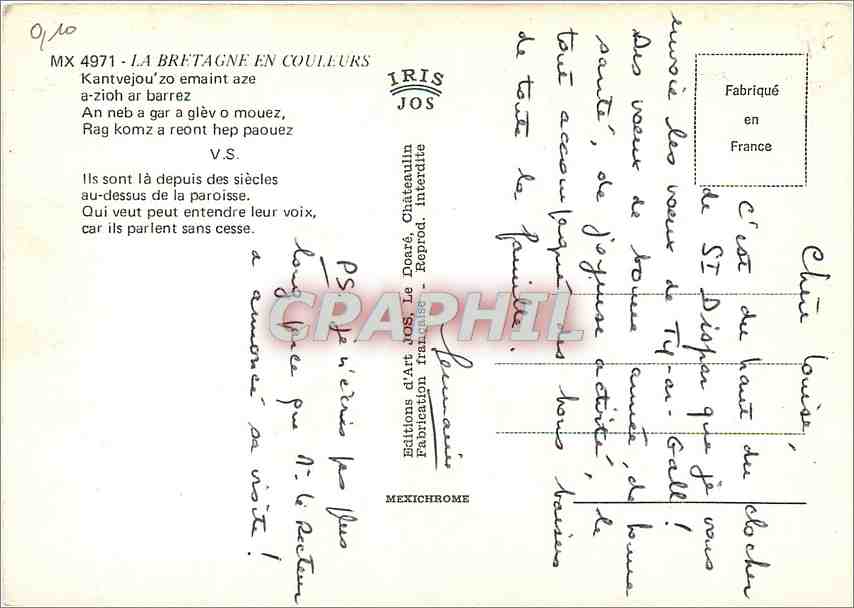 0,10
MX 4971 - LA BRETAGNE EN COULEURS
Kantvejou'zo emaint aze
a-zioh ar barrez
An neb a gar a glèv o mouez,
Rag komz a reont hep paouez
V.S.
Ils sont là depuis des siècles
au-dessus de la paroisse.
Qui veut peut entendre leur voix,
car ils parlent sans cesse.
IRIS
JOS
Editions d'Art JOS, Le Doaré, Châteaulin
Fabrication française - Reprod. interdite
MEXICHROME
Fabriqué
en
France
Chère Louise,
C'est du haut du clocher
de St Dispar que je vous
envoie les voeux de Ty-ar-Gall!
Des voeux de bonne année, de bonne
santé, de joyeuse activité, le
tout accompagné des bons baisers
de toute la famille.
PS: je n'écris pas plus
long parce que Mr le Recteur
a annoncé sa visite!
CPAPHIL